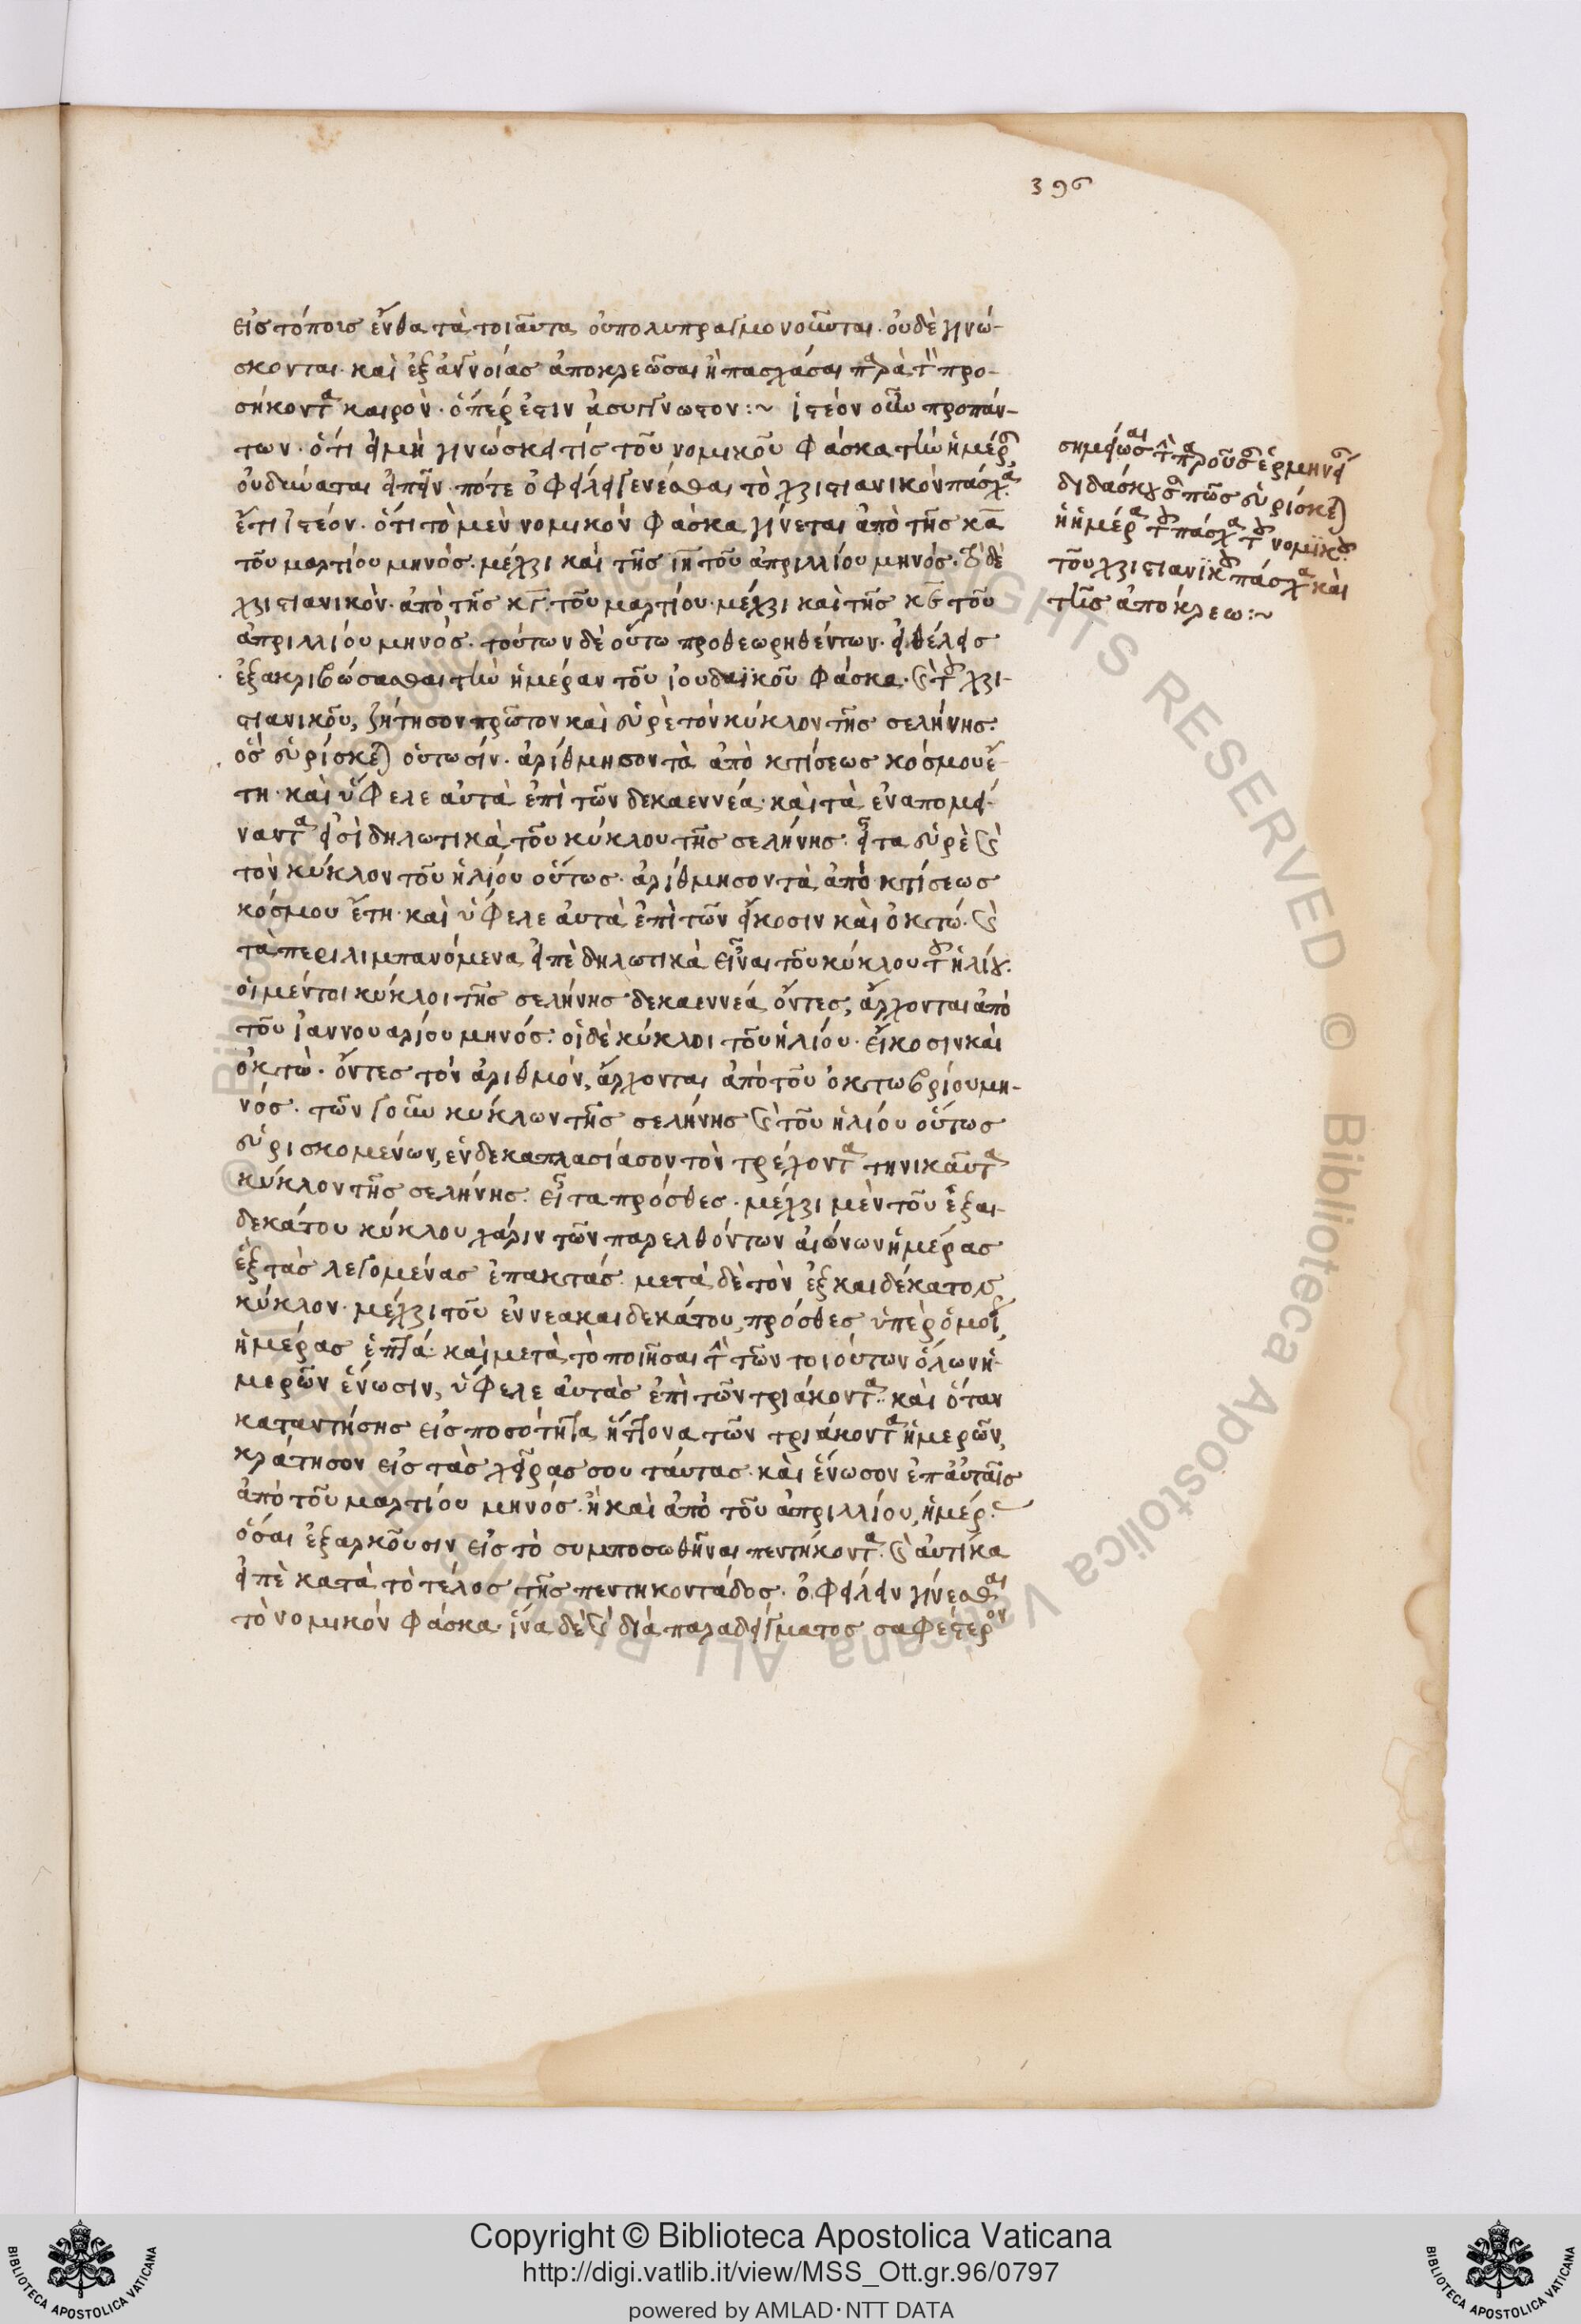 396
εἰς τόποις ἔνθα τὰ τοιαῦτα οὐ πολυπραγμονοῦνται· οὐδὲ γινώ-
σκονται· καὶ ἐξ ἀγνοίας ἀποκρεῶσαι ἢ πασχάσαι παρὰ τὸν προ-
σήκοντα καιρὸν· ὅπερ ἐστιν ἀσυγγνωστον:~ ἰστέον οὖν προπάν-
των· ὅτι εἰ μὴ γινώσκει τίς τοῦ νομικοῦ φάσκα τὴν ἡμέρας
οὐ δύναται εἰπεῖν· πότε ὀφείλει γενέσθαι τὸ χριστιανικὸν πάσχα·
ἔτι ἰστέον· ὅτι τὸ μὲν νομικὸν φάσκα γίνεται ἀπὸ τῆς κα
τοῦ μαρτίου μηνός· μέχρι καὶ τῆς ιη τοῦ ἀπριλλίου μηνός· τὸ δὲ
χριστιανικὸν· ἀπὸ τῆς κγ· τοῦ μαρτίου· μέχρι καὶ τῆς κε τοῦ
ἀπριλλίου μηνός· τούτων δὲ οὕτω προθεωρηθέντων· εἰ θέλεις
ἐξακριβώσασθαι τὴν ἡμέραν τοῦ ἰουδαϊκοῦ φάσκα· καὶ τοῦ χρι-
στιανικοῦ, ζήτησον πρῶτον καὶ εὑρὲ τὸν κύκλον τῆς σελήνης·
ὃς εὑρίσκεται οὑτωσίν· ἀρίθμησον τὰ ἀπὸ κτίσεως κόσμου ἔ-
τη· καὶ ὕφελε αὐτὰ ἐπὶ τῶν δεκαεννέα· καὶ τὰ ἐναπομεί-
ναντα εἰσὶ δηλωτικὰ τοῦ κύκλου τῆς σελήνης· εἶτα εὑρὲ καὶ
τὸν κύκλον τοῦ ἡλίου οὕτως· ἀρίθμησον τὰ ἀπὸ κτίσεως
κόσμου ἔτη· καὶ ὕφελε αὐτὰ ἐπὶ τῶν εἴκοσιν καὶ ὀκτώ· καὶ
τὰ περιλιμπανόμενα εἰπὲ δηλωτικὰ εἶναι τοῦ κύκλου τοῦ ἡλίου·
οἱ μέντοι κύκλοι τῆς σελήνης δεκαεννέα ὄντες, ἄρχονται ἀπὸ
τοῦ ἰαννουαρίου μηνός· οἱ δὲ κύκλοι τοῦ ἡλίου· εἴκοσιν καὶ
ὀκτὼ· ὄντες τὸν ἀριθμόν, ἄρχονται ἀπὸ τοῦ ὀκτωβρίου μη-
νός· τῶν γοῦν κύκλων τῆς σελήνης καὶ τοῦ ἡλίου οὕτως
εὑρισκομένων, ἑνδεκαπλασίασον τὸν τρέχοντα τηνικαῦτα
κύκλον τῆς σελήνης· εἶτα πρόσθες· μέχρι μὲν τοῦ ἑξαι-
δεκάτου κύκλου χάριν τῶν παρελθόντων αἰώνων ἡμέρας
ἓξ τὰς λεγομένας ἐπακτάς· μετὰ δὲ τὸν ἑξκαιδέκατον
κύκλον· μέχρι τοῦ ἐννεακαιδεκάτου, πρόσθες ὑπὲρ ὁμοί
ἡμέρας ἑπτά· καὶ μετὰ τὸ ποιῆσαι τὴν τῶν τοιούτων ὅλων ἡ-
μερῶν ἕνωσιν, ὕφελε αὐτὰς ἐπὶ τῶν τριάκοντα· καὶ ὅταν
καταντήσης εἰς ποσότητα ἥττονα τῶν τριάκοντα ἡμερῶν,
κράτησον εἰς τὰς χεῖρας σου ταύτας· καὶ ἕνωσον ἐπ αὐταῖς
ἀπὸ τοῦ μαρτίου μηνός· ἢ καὶ ἀπὸ τοῦ ἀπριλλίου, ἡμέρας
ὅσαι ἐξαρκοῦσιν εἰς τὸ συμποσωθῆναι πεντήκοντα· καὶ αὐτίκα
εἰπὲ κατὰ τὸ τέλος τῆς πεντηκοντάδος· ὀφείλειν γίνεσθαι
τὸ νομικὸν φάσκα· ἵνα δὲ καὶ διὰ παραδείγματος σαφέστερον
σημείωσαι τὴν παροῦσαν ἑρμηνεία
διδάσκουσαν πῶς εὑρίσκεται
ἡ ἡμέρα τοῦ πάσχα τοῦ νομϊκοῦ
τοῦ χριστιανϊκοῦ πάσχα καὶ
τῆς ἀπόκρεω:~
Copyright © Biblioteca Apostolica Vaticana
http://digi.vatlib.it/view/MSS_Ott.gr.96/0797
powered by AMLAD·NTT DATA
BIBLIOTECA APOSTOLICA VATICANA
BIBLIOTECA APOSTOLICA VATICANA